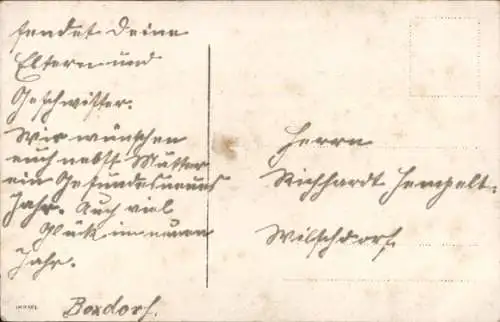 sendet Deine
Eltern und
Geschwister.
Wir wünschen
euch nebst Mutter
ein Gesundes neues
Jahr. Auch viel
Glück im neuen
Jahr.
Boxdorf.
Herrn
Richhardt Hempelt.
Wilschdorf.